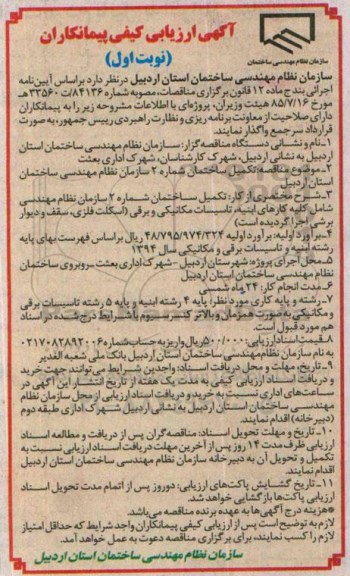 آگهی ارزیابی کیفی پیمانکاران
(نوبت اول)
سازمان نظام مهندسی ساختمان
سازمان نظام مهندسی ساختمان استان اردبیل درنظر دارد براساس آیین‌نامه
اجرائی بند ج ماده ۱۲ قانون برگزاری مناقصات، مصوبه شماره ۸۴۱۳۶/ت ۳۳۵۶۰هـ
مورخ ۸۵/۷/۱۶ هیئت وزیران، پروژه‌ای با اطلاعات مشروحه زیر را به پیمانکاران
دارای صلاحیت از معاونت برنامه ریزی و نظارت راهبردی رییس جمهور، به صورت
قرارداد سرجمع واگذار نمایند.
۱ـ نام و نشانی دستگاه مناقصه‌گزار: سازمان نظام مهندسی ساختمان استان
اردبیل به نشانی اردبیل، شهرک کارشناسان، شهرک اداری بعثت
۲ـ موضوع مناقصه: تکمیل ساختمان شماره ۲ سازمان نظام مهندسی ساختمان
استان اردبیل
۳ـ شرح مختصری از کار: تکمیل ساختمان شماره ۲ سازمان نظام مهندسی
شامل کلیه کارهای ابنیه، تاسیسات مکانیکی و برقی (اسکلت فلزی، سقف و دیوار
برشی اجرا گردیده است)
۴ـ برآورد اولیه: برآورد اولیه ۴۸/۷۹۵/۹۷۴/۳۲۴ ریال براساس فهرست بهای پایه
رشته ابنیه و تاسیسات برقی و مکانیکی سال ۱۳۹۴
۵ـ محل اجرای پروژه: شهرستان اردبیل - شهرک اداری بعثت - روبروی ساختمان
نظام مهندسی ساختمان استان اردبیل
۶ـ مدت انجام کار: ۲۴ ماه شمسی
۷ـ رشته و پایه کاری مورد نظر: پایه ۴ رشته ابنیه و پایه ۵ رشته تاسیسات برقی
و مکانیکی به صورت همزمان و بالاتر کنسرسیوم با شرایط درج شده در اسناد
هم مورد قبول است.
۸ـ قیمت اسناد ارزیابی: ۵۰۰/۰۰۰ ریال واریز به حساب شماره ۰۲۱۷۰۸۲۸۹۲۰۰۶
به نام سازمان نظام مهندسی ساختمان استان اردبیل بانک ملی شعبه الغدیر
۹ـ تاریخ، مهلت و محل دریافت اسناد: واجدین شرایط می‌توانند جهت خرید
و دریافت اسناد ارزیابی کیفی به مدت یک هفته از تاریخ انتشار این آگهی در
ساعت‌های اداری نسبت به خرید و دریافت اسناد ارزیابی از محل سازمان نظام
مهندسی ساختمان استان اردبیل به نشانی اردبیل شهرک اداری طبقه دوم
(دبیرخانه) اقدام نمایند.
۱۰ـ تاریخ و مهلت تحویل اسناد: مناقصه‌گران پس از دریافت و مطالعه اسناد
ارزیابی ظرف مدت ۱۴ روز پس از آخرین مهلت دریافت اسناد ارزیابی نسبت به
تکمیل و تحویل آن به دبیرخانه سازمان نظام مهندسی ساختمان استان اردبیل
اقدام نمایند.
۱۱ـ تاریخ گشایش پاکت‌های ارزیابی: دو روز پس از اتمام مدت تحویل اسناد
ارزیابی پاکت‌ها بازگشایی خواهد شد.
*هزینه درج آگهی‌ها به عهده برنده مناقصه می‌باشد.
لازم به توضیح است پس از ارزیابی کیفی پیمانکاران واجد شرایط که حداقل امتیاز
لازم را کسب نمایند، برای برگزاری مناقصه دعوت به عمل خواهد آمد.
سازمان نظام مهندسی ساختمان استان اردبیل